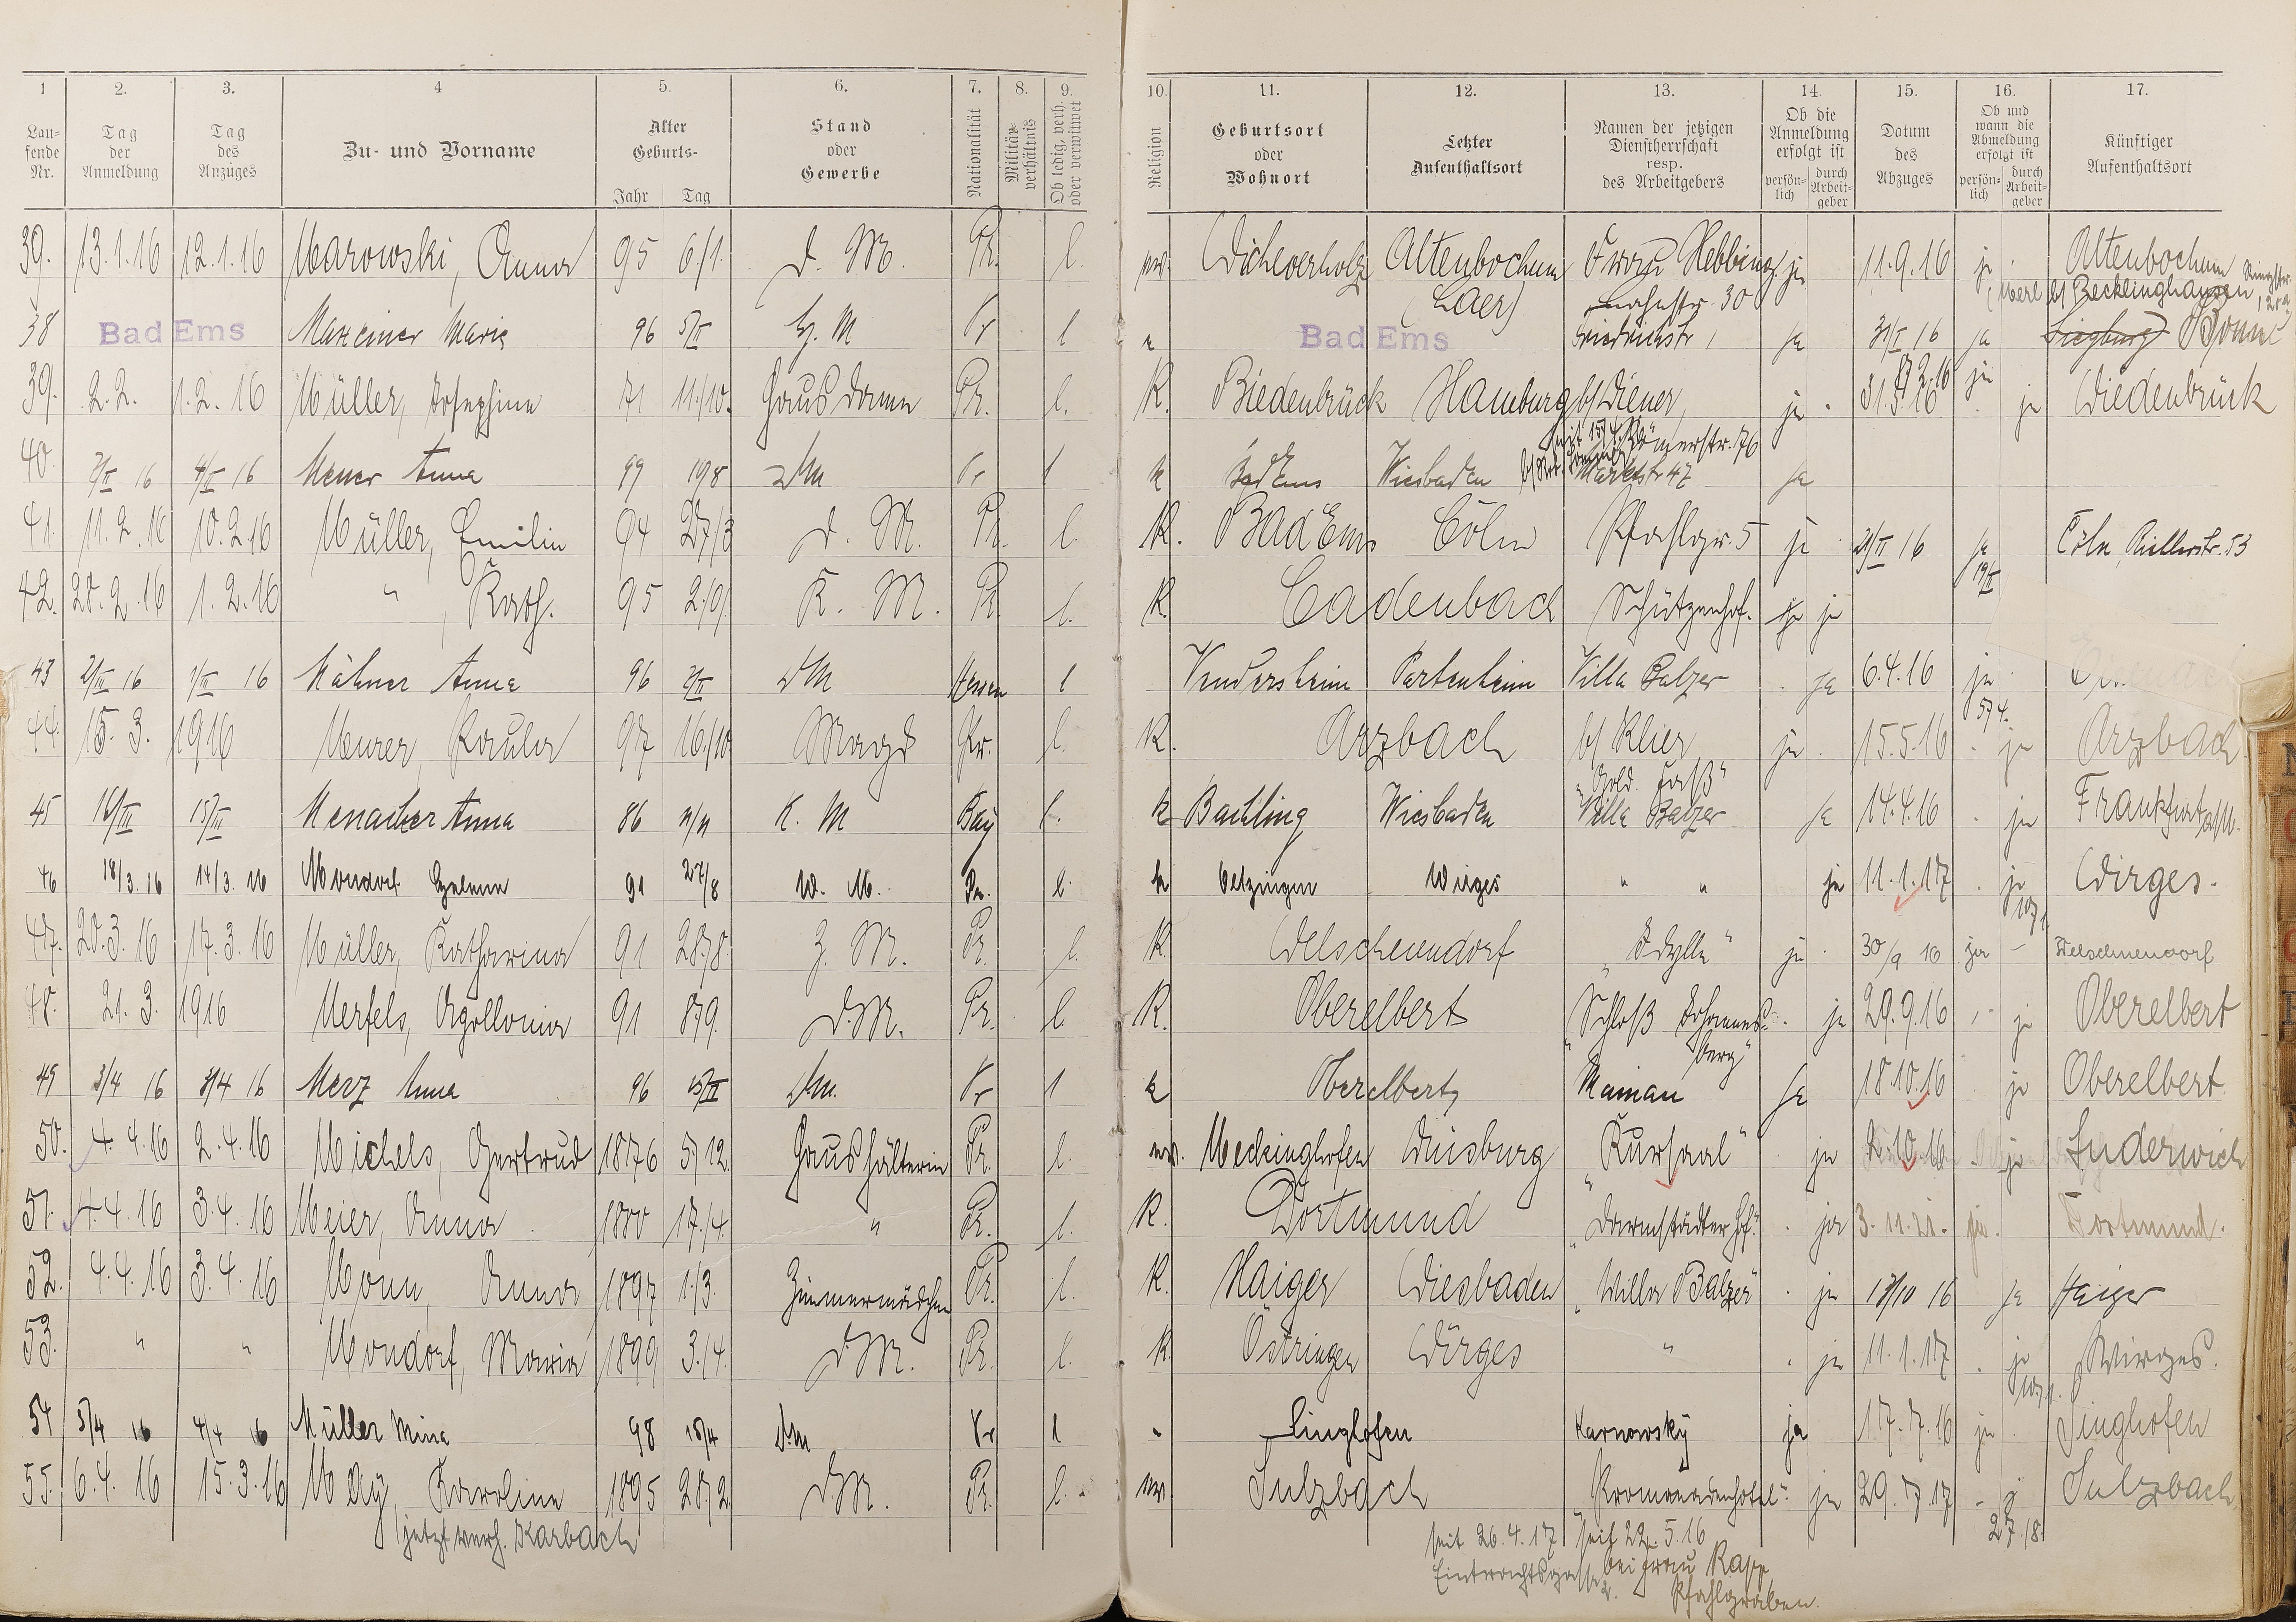 1 2. 3. 4 5. 6. 7. 8. 9. 10. 11. 12. 13. 14. 15. 16. 17.
Lau-
fende
Nr.
Tag
der
Anmeldung
Tag
des
Anzuges
Zu- und Vorname
Alter
Geburts-
Jahr Tag
Stand
oder
Gewerbe
Nationalität
Militär-
verhältnis
Ob ledig, verh.
oder verwitwet
Religion
Geburtsort
oder
Wohnort
Letzter
Aufenthaltsort
Namen der jetzigen
Dienstherrschaft
resp.
des Arbeitgebers
Ob die
Anmeldung
erfolgt ist
persön-
lich
durch
Arbeit-
geber
Datum
des
Abzuges
Ob und
wann die
Abmeldung
erfolgt ist
persön-
lich
durch
Arbeit-
geber
Künftiger
Aufenthaltsort
39. 13.1.16 12.1.16 Marowski, Anna 95 6/1. D. M. Pr. l. Altenbochum Frau Hebbing ja 11.9.16 ja Altenbochum
(Laer) 30 Recklinghausen
38 Bad Ems Maxeiner Marie 96 5/II H. M Pr l Bad Ems Friedrichstr 1 ja 31/I 16 ja Siegburg Bonn
39. 2.2. 1.2.16 Müller, Josephine 71 11./10. Hausdame Pr. l. K. Biedenbrück Hamburg b/ Diener, ja 31.3.16 ja Wiedenbrück
Römerstr. 76
40. 7/II 16 4/II 16 Meuer Anna 99 19/8 DM Pr l k Bad Ems Wiesbaden Marktstr 47 ja
41. 11.2.16 10.2.16 Müller, Emilie 94 27/3 D. M. Pr. l. K. Bad Ems Cöln Pfahlgr. 5 ja 21/II 16 ja Cöln, 53
19/II
42. 20.2.16 1.2.16 " , Kath. 95 2./9. K. M. Pr. l. K. Cadenbach Schützenhof. ja
43 2/III 16 1/III 16 Mähner Anna 96 2/II DM Hessen l Vendersheim Partenheim Villa Balzer ja 6.4.16 ja
5/4.
44. 15.3. 1916 Meurer, Paula 97 16./10 Magd Pr. l. K. Arzbach b/ Klier ja 15.5.16 ja Arzbach
"Gold. Faß"
45 16/III 15/III Menacher Anna 86 11/11 K. M Bay l. k Bachling Wiesbaden Villa Balzer ja 14.4.16 ja Frankfurt a/M.
46 18/3.16 14/3.16 Mondorf Helene 91 27/8 W. M. Pr. l. k Oetzingen Wirges " " ja 11.1.17 ja Wirges.
10/1.
47. 20.3.16 17.3.16 Müller, Katharina 91 28./8. Z. M. Pr. l. K. Welschneudorf "Idylle" ja 30/9 16 ja Welschneudorf
48. 21.3. 1916 Merfels, Apollonia 91 8/9. D.M. Pr. l. K. Oberelbert "Schloß Johannes- ja 29.9.16 ja Oberelbert
berg"
49 3/4 16 3/4 16 Merz Anna 96 15/II D.M. Pr l k Oberelbert Mainau ja 18.10.16 ja Oberelbert.
50. 4.4.16 2.4.16 Michels, Gertrud 1876 5./12. Haushälterin Pr. l. ev. Meckinghofen Duisburg "Kursaal" ja ja Suderwich
51. 4.4.16 3.4.16 Meier, Anna 1880 17./4. " Pr. l. K. Dortmund "Darmstädter Hof." ja 3.11.21. ja. Dortmund.
52. 4.4.16 3.4.16 Monn, Anna 1897 1./3. Zimmermädchen Pr. l. K. Haiger Wiesbaden "Villa Balzer" ja 18/10 16 ja Haiger
53. " " Mondorf, Maria 1899 3./4. D.M. Pr. l. K. Östringen Wirges " ja 11.1.17 ja Wirges.
10/1.
54 5/4 16 4/4 16 Müller Mina 98 18/4 DM Pr l Singhofen Karnowsky ja 17.7.16 ja Singhofen
55. 6.4.16 15.3.16 May, Karoline 1895 28./2. D.M. Pr. l. ev. Sulzbach "Promenadenhotel". ja 29.7.17 Sulzbach
jetzt verh. Karbach seit 26.4.17 seit 22.5.16 27./8.
Eintrachtsgasse 2. bei Frau Rapp
Pfahlgraben.